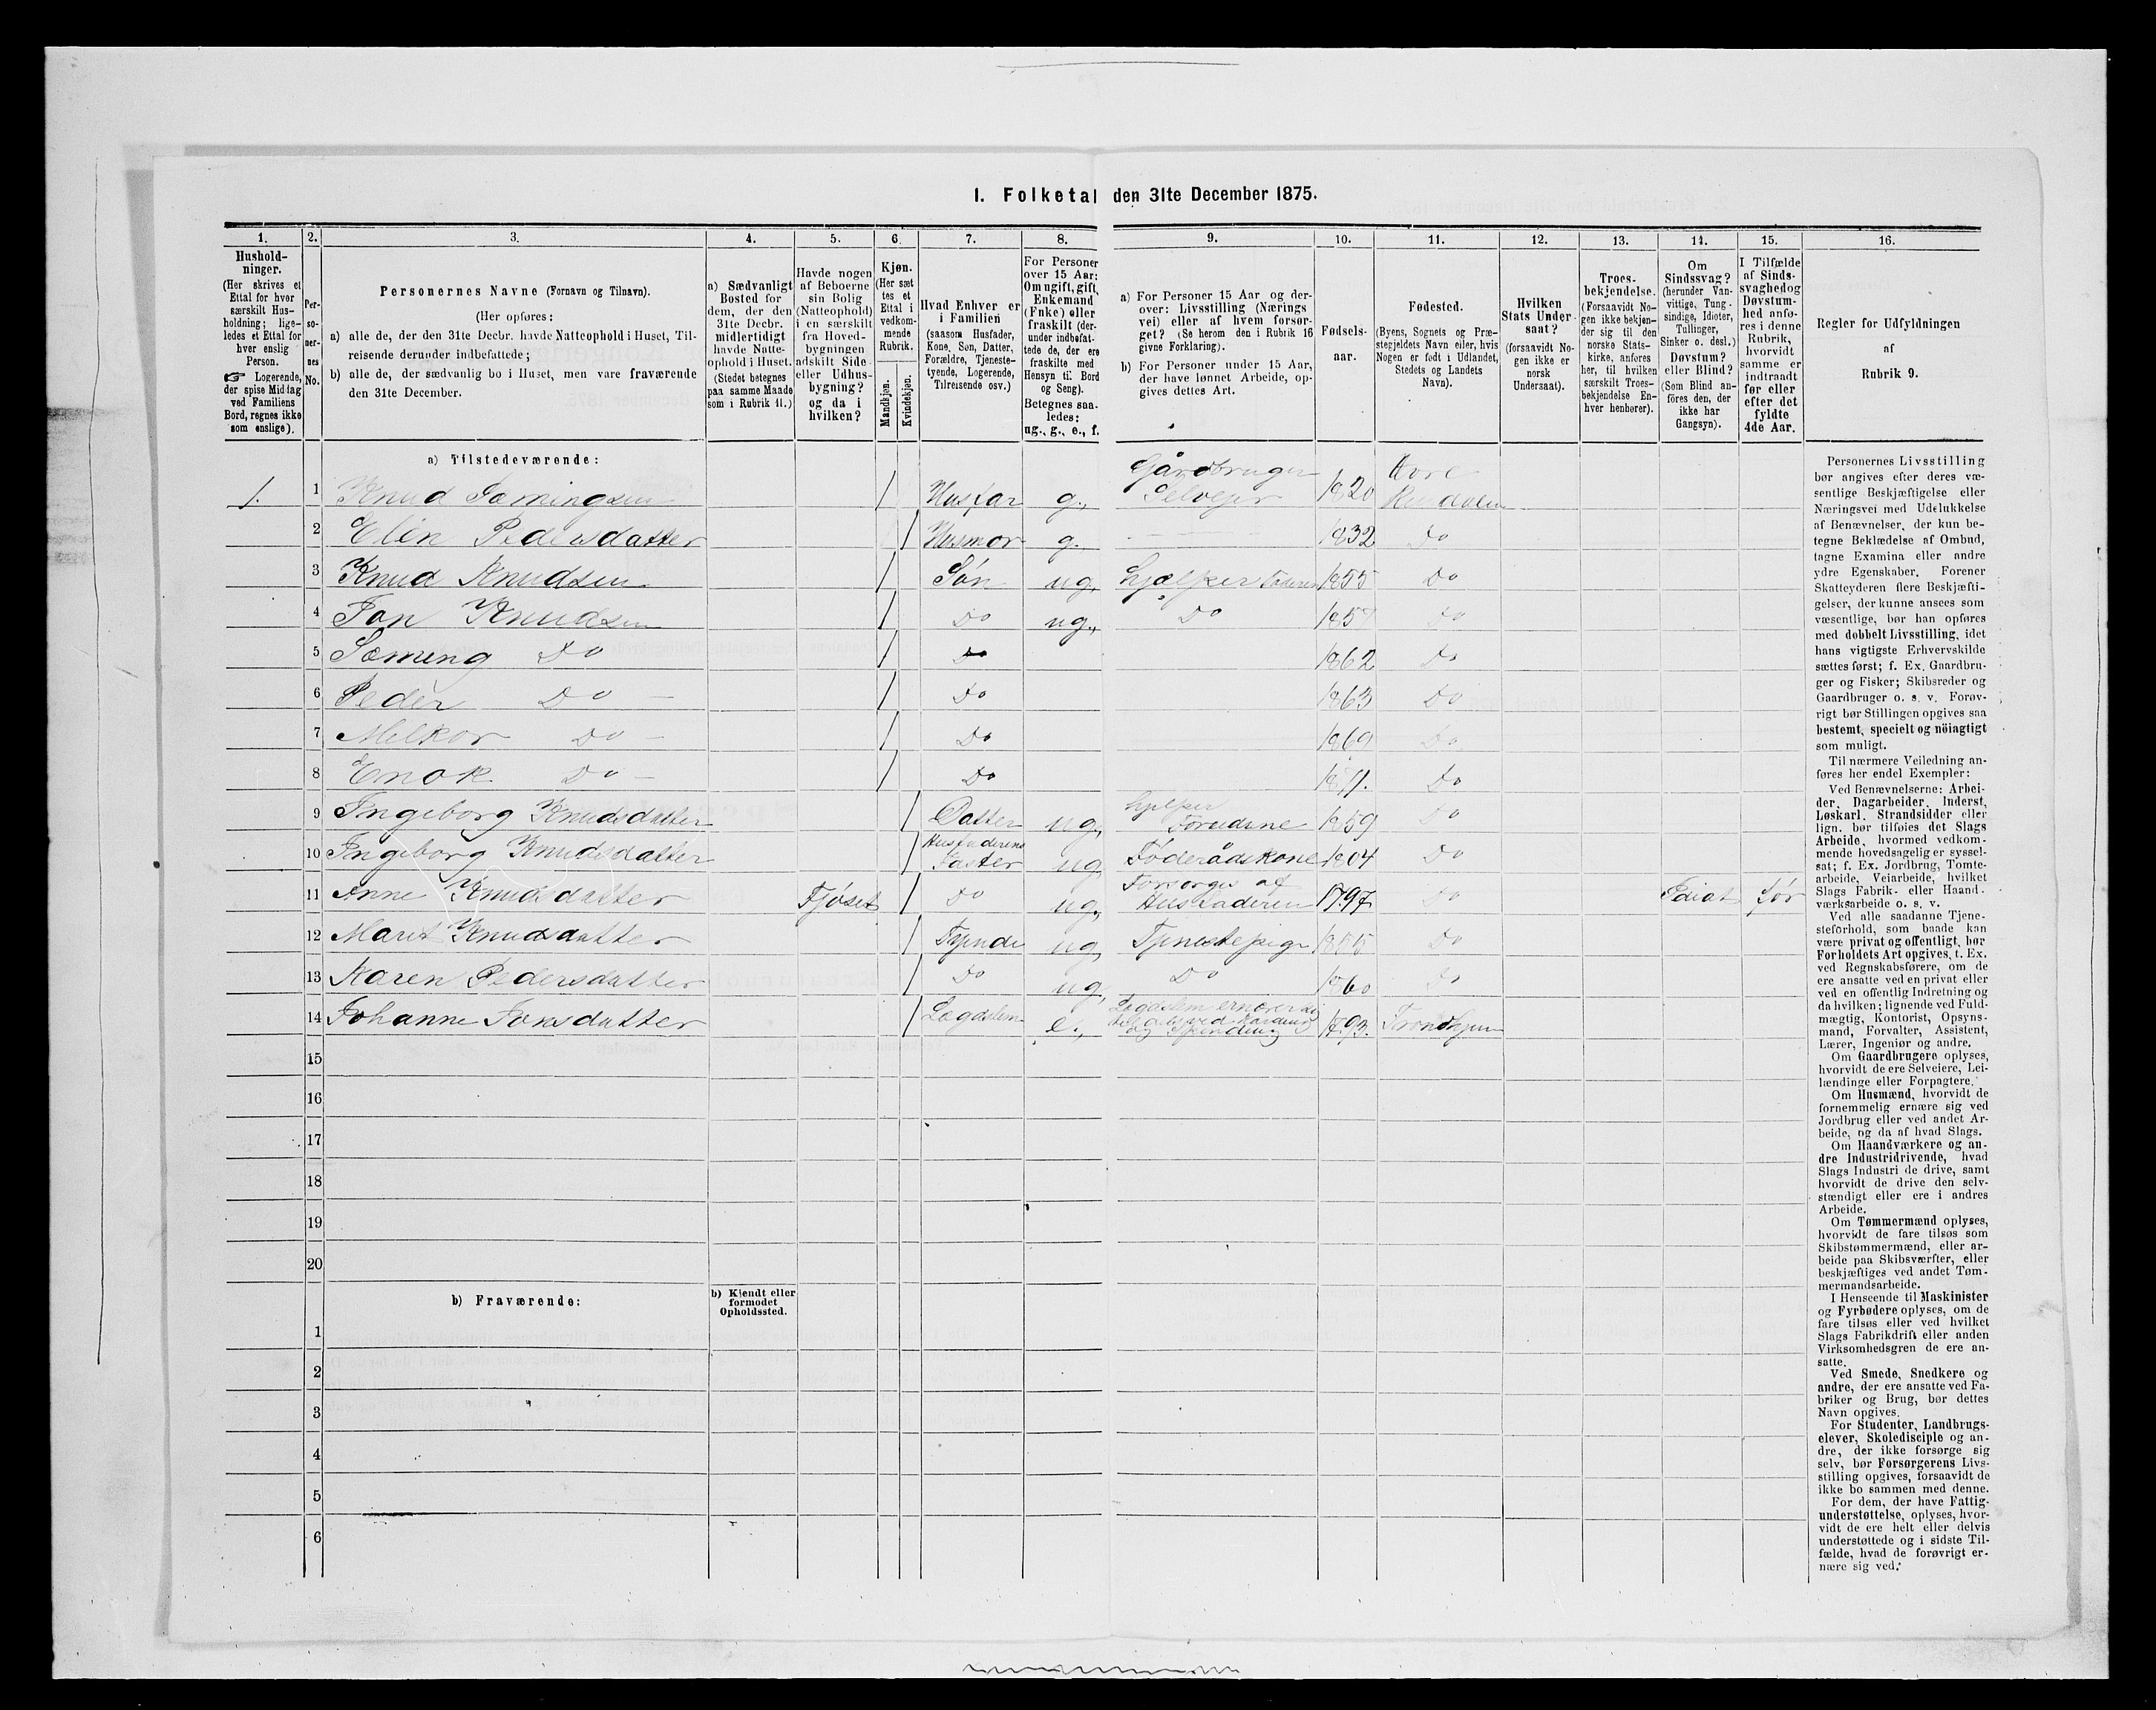 1. Folketal den 31te December 1875.
1. 2. 3. 4. 5. 6. 7. 8. 9. 10. 11. 12. 13. 14. 15. 16.
Hushold-
ninger.
(Her skrives et
Ettal for hver
særskilt Hus-
holdning; lige-
ledes et Ettal for
hver enslig
Person.
☞ Logerende,
der spise Middag
ved Familiens
Bord, regnes ikke
som enslige).
Per-
so-
ner-
nes
No.
Personernes Navne (Fornavn og Tilnavn).
(Her opføres:
a) alle de, der den 31te Decbr. havde Natteophold i Huset, Til-
reisende derunder indbefattede;
b) alle de, der sædvanlig bo i Huset, men vare fraværende
den 31te December.
a) Sædvanligt
Bosted for
dem, der den
31te Decbr.
midlertidigt
havde Natte-
ophold i Huset.
(Stedet betegnes
paa samme Maade
som i Rubrik 11.)
Havde nogen
af Beboerne
sin Bolig
(Natteophold)
i en særskilt
fra Hoved-
bygningen
adskilt Side-
eller Udhus-
bygning?
og da i
hvilken?
Kjøn.
(Her sæt-
tes et
Ettal i
vedkom-
mende
Rubrik.
Mandkjøn.
Kvindekjøn.
Hvad Enhver er
i Familien
(saasom Husfader,
Kone, Søn, Datter,
Forældre, Tjeneste-
tyende, Logerende,
Tilreisende osv.)
For Personer
over 15 Aar:
Om ugift, gift,
Enkemand
(Enke) eller
fraskilt (der-
under indbefat-
tede de, der ere
fraskilte med
Hensyn til Bord
og Seng).
Betegnes saa-
ledes:
ug., g., e., f.
a) For Personer 15 Aar og der-
over: Livsstilling (Nærings
vei) eller af hvem forsør-
get? (Se herom den i Rubrik 16
givne Forklaring).
b) For Personer under 15 Aar,
der have lønnet Arbeide, op-
gives dettes Art.
Fødsels-
aar.
Fødested.
(Byens, Sognets og Præ-
stegjeldets Navn eller, hvis
Nogen er født i Udlandet,
Stedets og Landets
Navn).
Hvilken
Stats Under-
saat?
(forsaavidt No-
gen ikke er
norsk
Undersaat).
Troes-
bekjendelse.
(Forsaavidt No-
gen ikke bekjen-
der sig til den
norske Stats-
kirke, anføres
her, til hvilken
særskilt Troes-
bekjendelse En-
hver henhører).
Om
Sindssvag?
(herunder Van-
vittige, Tung-
sindige, Idioter,
Tullinger,
Sinker o. desl.)
Døvstum?
eller Blind?
(Som Blind an-
føres den, der
ikke har
Gangsyn).
I Tilfælde
af Sinds-
svaghed og
Døvstum-
hed anfø-
res i denne
Rubrik,
hvorvidt
samme er
indtraadt
før eller
efter det
fyldte
4de Aar.
Regler for Udfyldningen
af
Rubrik 9.
a) Tilstedeværende:
1. 1 Knud Sæmingsen / Husfar g. Gårdbruger Selvejer 1820 Rendalen
2 Elen Pedersdatter / Husmor g. 1832 Do
3 Knud Knudsen / Søn ug. hjælper Faderen 1855 Do
4 Jon Knudsen / Do ug. Do 1857 Do
5 Sæming Do / Do 1862 Do
6 Peder Do / Do 1863 Do
7 Melkor Do / Do 1869 Do
8 Enok Do / Do 1871. Do
9 Ingeborg Knudsdatter / Datter ug. hjelper 1859 Do
10 Ingeborg Knudsdatter / Husfaderens Faster ug. Føderådskone 1804 Do
11 Anne Knudsdatter Fjøset / Do ug. Forsørges af Husfaderen 1797 Do Idiot før
12 Maret Knudsdatter / Tjende ug. Tjenestepige 1855 Do
13 Karen Pedersdatter / Do ug. Do 1860 Do
14 Johanne Jonsdatter / Lægdslem e. Lægdslem 1793. Trondhjem
15
16
17
18
19
20
b) Fraværende:
b) Kjendt eller
formodet
Opholdssted.
1
2
3
4
5
6
Personernes Livsstilling
bør angives efter deres væ-
sentlige Beskjæftigelse eller
Næringsvei med Udelukkelse
af Benævnelser, der kun be-
tegne Beklædelse af Ombud,
tagne Examina eller andre
ydre Egenskaber. Forener
Skatteyderen flere Beskjæfti-
gelser, der kunne ansees som
væsentlige, bør han opføres
med dobbelt Livsstilling, idet
hans vigtigste Erhvervskilde
sættes først; f. Ex. Gaardbru-
ger og Fisker; Skibsreder og
Gaardbruger o. s. v. Forøv-
rigt bør Stillingen opgives saa
bestemt, specielt og nöiagtigt
som muligt.
Til nærmere Veiledning an-
føres her endel Exempler:
Ved Benævnelserne: Arbei-
der, Dagarbeider, Inderst,
Løskarl, Strandsidder eller
lign. bør tilføies det Slags
Arbeide, hvormed vedkom-
mende hovedsagelig er syssel-
sat; f. Ex. Jordbrug, Tomte-
arbeide, Veiarbeide, hvilket
Slags Fabrik- eller Haand-
værksarbeide o. s. v.
Ved alle saadanne Tjene-
steforhold, som baade kan
være privat og offentligt, bør
Forholdets Art opgives, f. Ex.
ved Regnskabsførere, om de
ere ansatte ved en privat eller
ved en offentlig Indretning og
da hvilken; lignende ved Fuld-
mægtig, Kontorist, Opsyns-
mand, Forvalter, Assistent,
Lærer, Ingeniør og andre.
Om Gaardbrugere oplyses,
hvorvidt de ere Selveiere, Lei-
lændinge eller Forpagtere.
Om Husmænd, hvorvidt de
fornemmelig ernære sig ved
Jordbrug eller ved andet Ar-
beide, og da af hvad Slags.
Om Haandværkere og an-
dre Industridrivende, hvad
Slags Industri de drive, samt
hvorvidt de drive den selv-
stændigt eller ere i andres
Arbeide.
Om Tømmermænd oplyses,
hvorvidt de fare tilsøs som
Skibstømmermænd, eller ar-
beide paa Skibsværfter, eller
beskjæftiges ved andet Tøm-
mermandsarbeide.
I Henseende til Maskinister
og Fyrbødere oplyses, om de
fare tilsøs eller ved hvilket
Slags Fabrikdrift eller anden
Virksomhedsgren de ere an-
satte.
Ved Smede, Snedkere og
andre, der ere ansatte ved Fa-
briker og Brug, bør dettes
Navn opgives.
For Studenter, Landbrugs-
elever, Skoledisciple og an-
dre, der ikke forsørge sig
selv, bør Forsørgerens Livs-
stilling opgives, forsaavidt de
ikke bo sammen med denne.
For dem, der have Fattig-
understøttelse, oplyses, hvor-
vidt de ere helt eller delvis
understøttede og i sidste Til-
fælde, hvad de forøvrigt er-
nære sig ved.